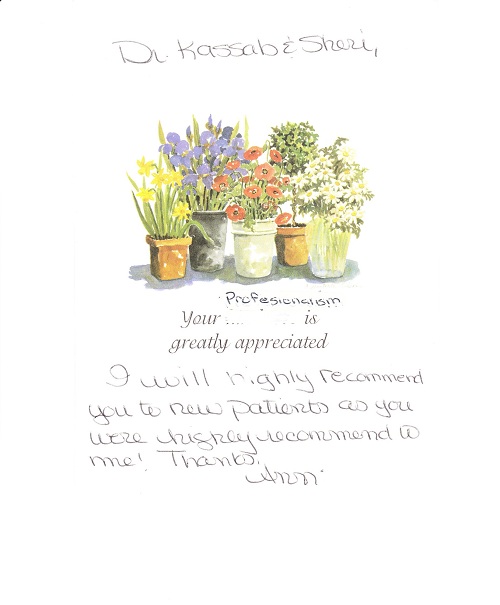 Dr. Kassab & Sheri,
Profesionalism
Your ... is
greatly appreciated
I will highly recommend
you to new patients as you
were highly recommend to
me! Thanks.
Ann